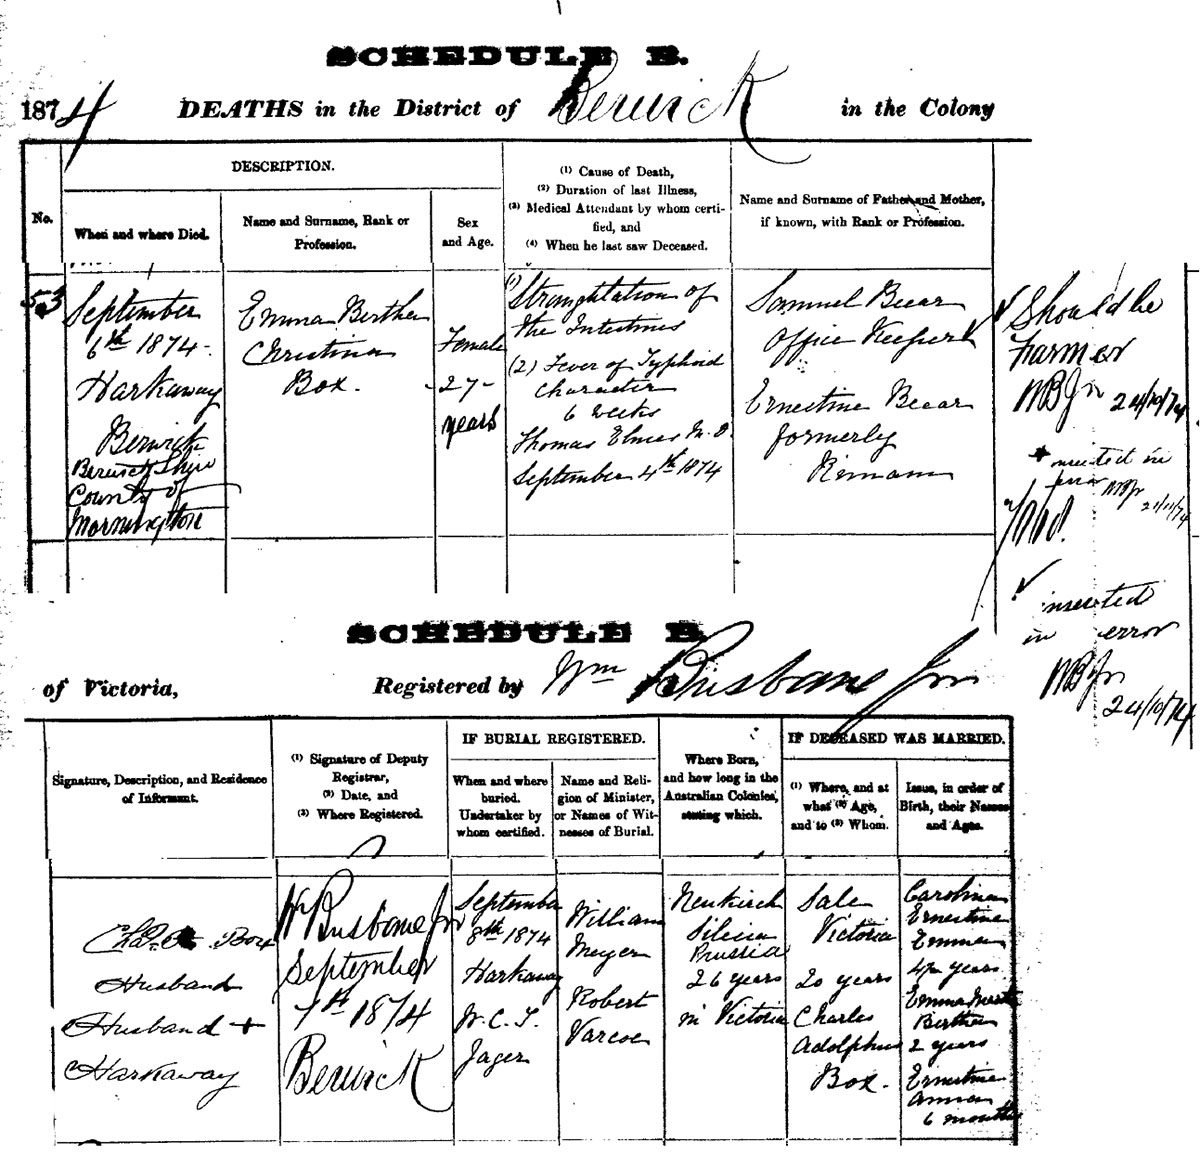 SCHEDULE B.
1874 DEATHS in the District of Berwick in the Colony
No.
DESCRIPTION.
When and where Died.
Name and Surname, Rank or
Profession.
Sex
and Age.
(1) Cause of Death,
(2) Duration of last Illness,
(3) Medical Attendant by whom certi-
fied, and
(4) When he last saw Deceased.
Name and Surname of Father and Mother,
if known, with Rank or Profession.
53
September
6th 1874
Harkaway
Berwick
Berwick Shire
County of
Mornington
Emma Bertha
Christina
Box.
Female
-27-
years
(1) Strangulation of
the Intestines
(2) Fever of Typhoid
Character
6 weeks
Thomas Elmes M.D.
September 4th 1874
Samuel Becar
Office Keeper
Ernestine Becar
formerly
Should be
Farmer
WBJn 24/10/74
inserted in
error WBJn
21/11/74
inserted
in error
WBJn
24/10/74
SCHEDULE B.
of Victoria, Registered by Wm Brisbane Jnr
Signature, Description, and Residence
of Informant.
(1) Signature of Deputy
Registrar,
(2) Date, and
(3) Where Registered.
IF BURIAL REGISTERED.
When and where
buried.
Undertaker by
whom certified.
Name and Reli-
gion of Minister,
or Names of Wit-
nesses of Burial.
Where Born,
and how long in the
Australian Colonies,
stating which.
IF DECEASED WAS MARRIED.
(1) Where, and at
what (2) Age,
and to (3) Whom.
Issue, in order of
Birth, their Names
and Ages.
Chas. Box
Husband
Husband +
Harkaway
W Brisbane Jnr
September
7th 1874
Berwick
September
8th 1874
Harkaway
W. C. T.
Jager
William
Meyer
Robert
Varcoe
Neukirch
Silicia
Prussia
26 years
in Victoria
Sale
Victoria
20 years
Charles
Adolphus
Box.
Carolina
Ernestine
Emma
4½ years
Emma
Bertha
2 years
Ernestine
Anna
6 months